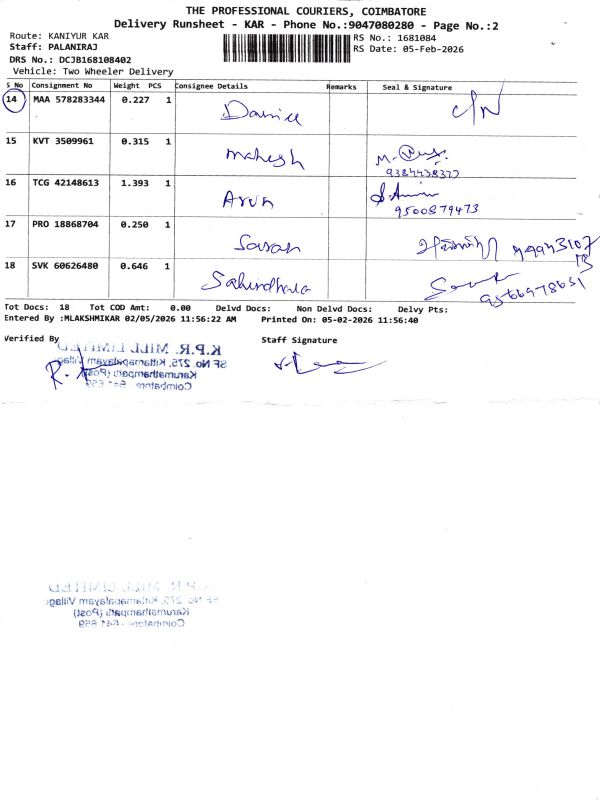 THE PROFESSIONAL COURIERS, COIMBATORE
Delivery Runsheet - KAR - Phone No.:9047080280 - Page No.:2
Route: KANIYUR KAR
RS No.: 1681084
Staff: PALANIRAJ
RS Date: 05-Feb-2026
DRS No.: DCJB168108402
Vehicle: Two Wheeler Delivery
S No Consignment No Weight PCS Consignee Details Remarks Seal & Signature
14 MAA 578283344 0.227 1 C/N
15 KVT 3509961 0.315 1 Mahesh M.
9384438377
16 TCG 42148613 1.393 1 Arun
9500879473
17 PRO 18868704 0.250 1 Saran
18 SVK 60626480 0.646 1
Tot Docs: 18 Tot COD Amt: 0.00 Delvd Docs: Non Delvd Docs: Delvy Pts:
Entered By :MLAKSHMIKAR 02/05/2026 11:56:22 AM Printed On: 05-02-2026 11:56:40
Verified By Staff Signature
K.P.R. MILL LIMITED
SF No. 275, Kittampalayam Village
Karumathampatti (Post)
Coimbatore - 641 659
K.P.R. MILL LIMITED
SF No. 275, Kittampalayam Village
Karumathampatti (Post)
Coimbatore - 641 659